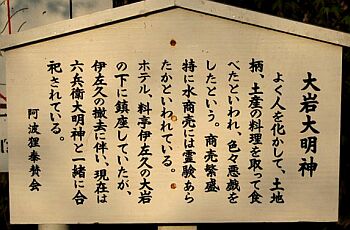 大岩大明神
よく人を化かして、土地
柄、土産の料理を取って食
べたといわれ、色々悪戯を
したという。商売繁盛
特に水商売には霊験あら
たかといわれている。
ホテル、料亭伊左久の大岩
の下に鎮座していたが、
伊左久の撤去に伴い、現在は
六兵衛大明神と一緒に合
祀されている。
阿波狸奉賛会